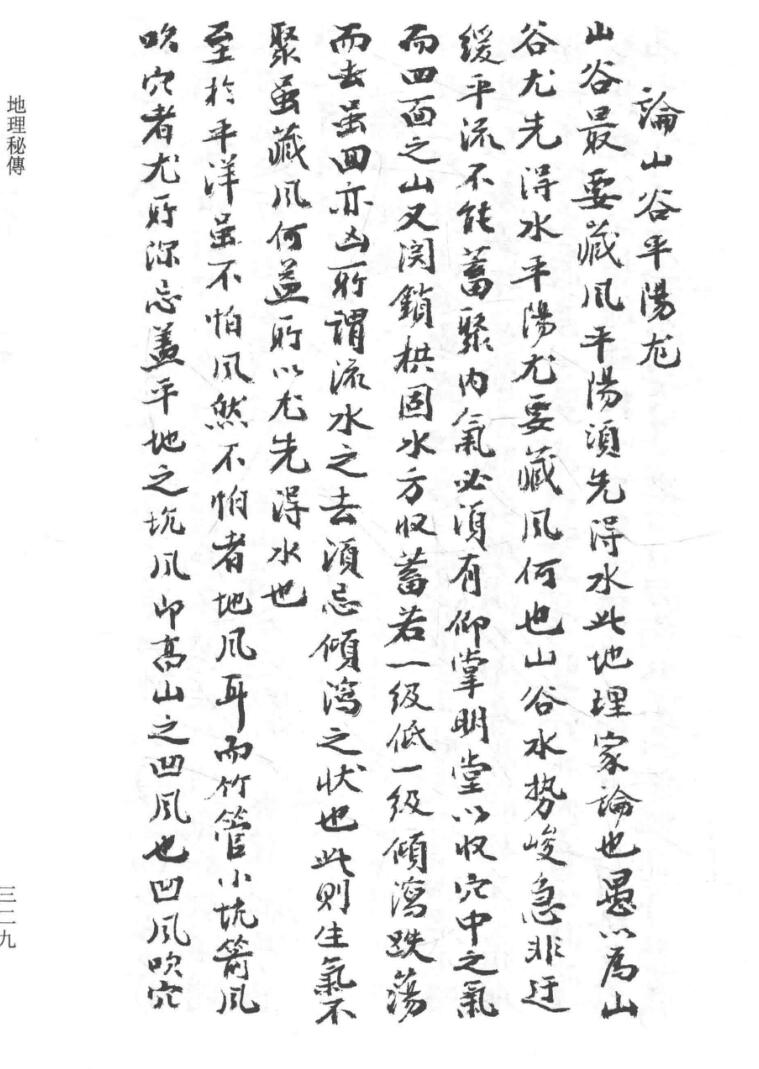 論山谷平陽尤
山谷最要藏風平陽須先得水此地理家論也愚以為山
谷尤先得水平陽尤要藏風何也山谷水势峻急非迂
緩平流不能蓄聚内氣必須有仰掌明堂以收穴中之氣
而四面之山又関鎖栱固水方收蓄若一級低一級傾瀉跌蕩
而去虽回亦凶所謂流水之去須忌傾瀉之状也此則生氣不
聚虽藏風何益所以尤先得水也
至於平洋虽不怕風然不怕者地風耳而竹管小坑箭風
吹穴者尤所深忌盖平地之坑風即高山之凹風也凹風吹穴
地理秘傳
三二九